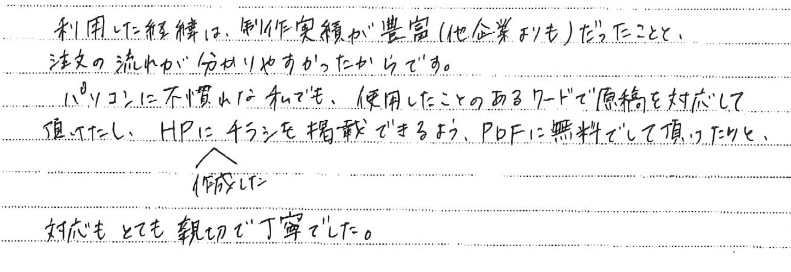 利用した経緯は、制作実績が豊富(他企業よりも)だったことと、
注文の流れが分かりやすかったからです。
パソコンに不慣れな私でも、使用したことのあるワードで原稿を対応して
頂けたし、HPにチラシを掲載できるよう、PDFに無料でして頂けたりと、
作成した
対応もとても親切で丁寧でした。